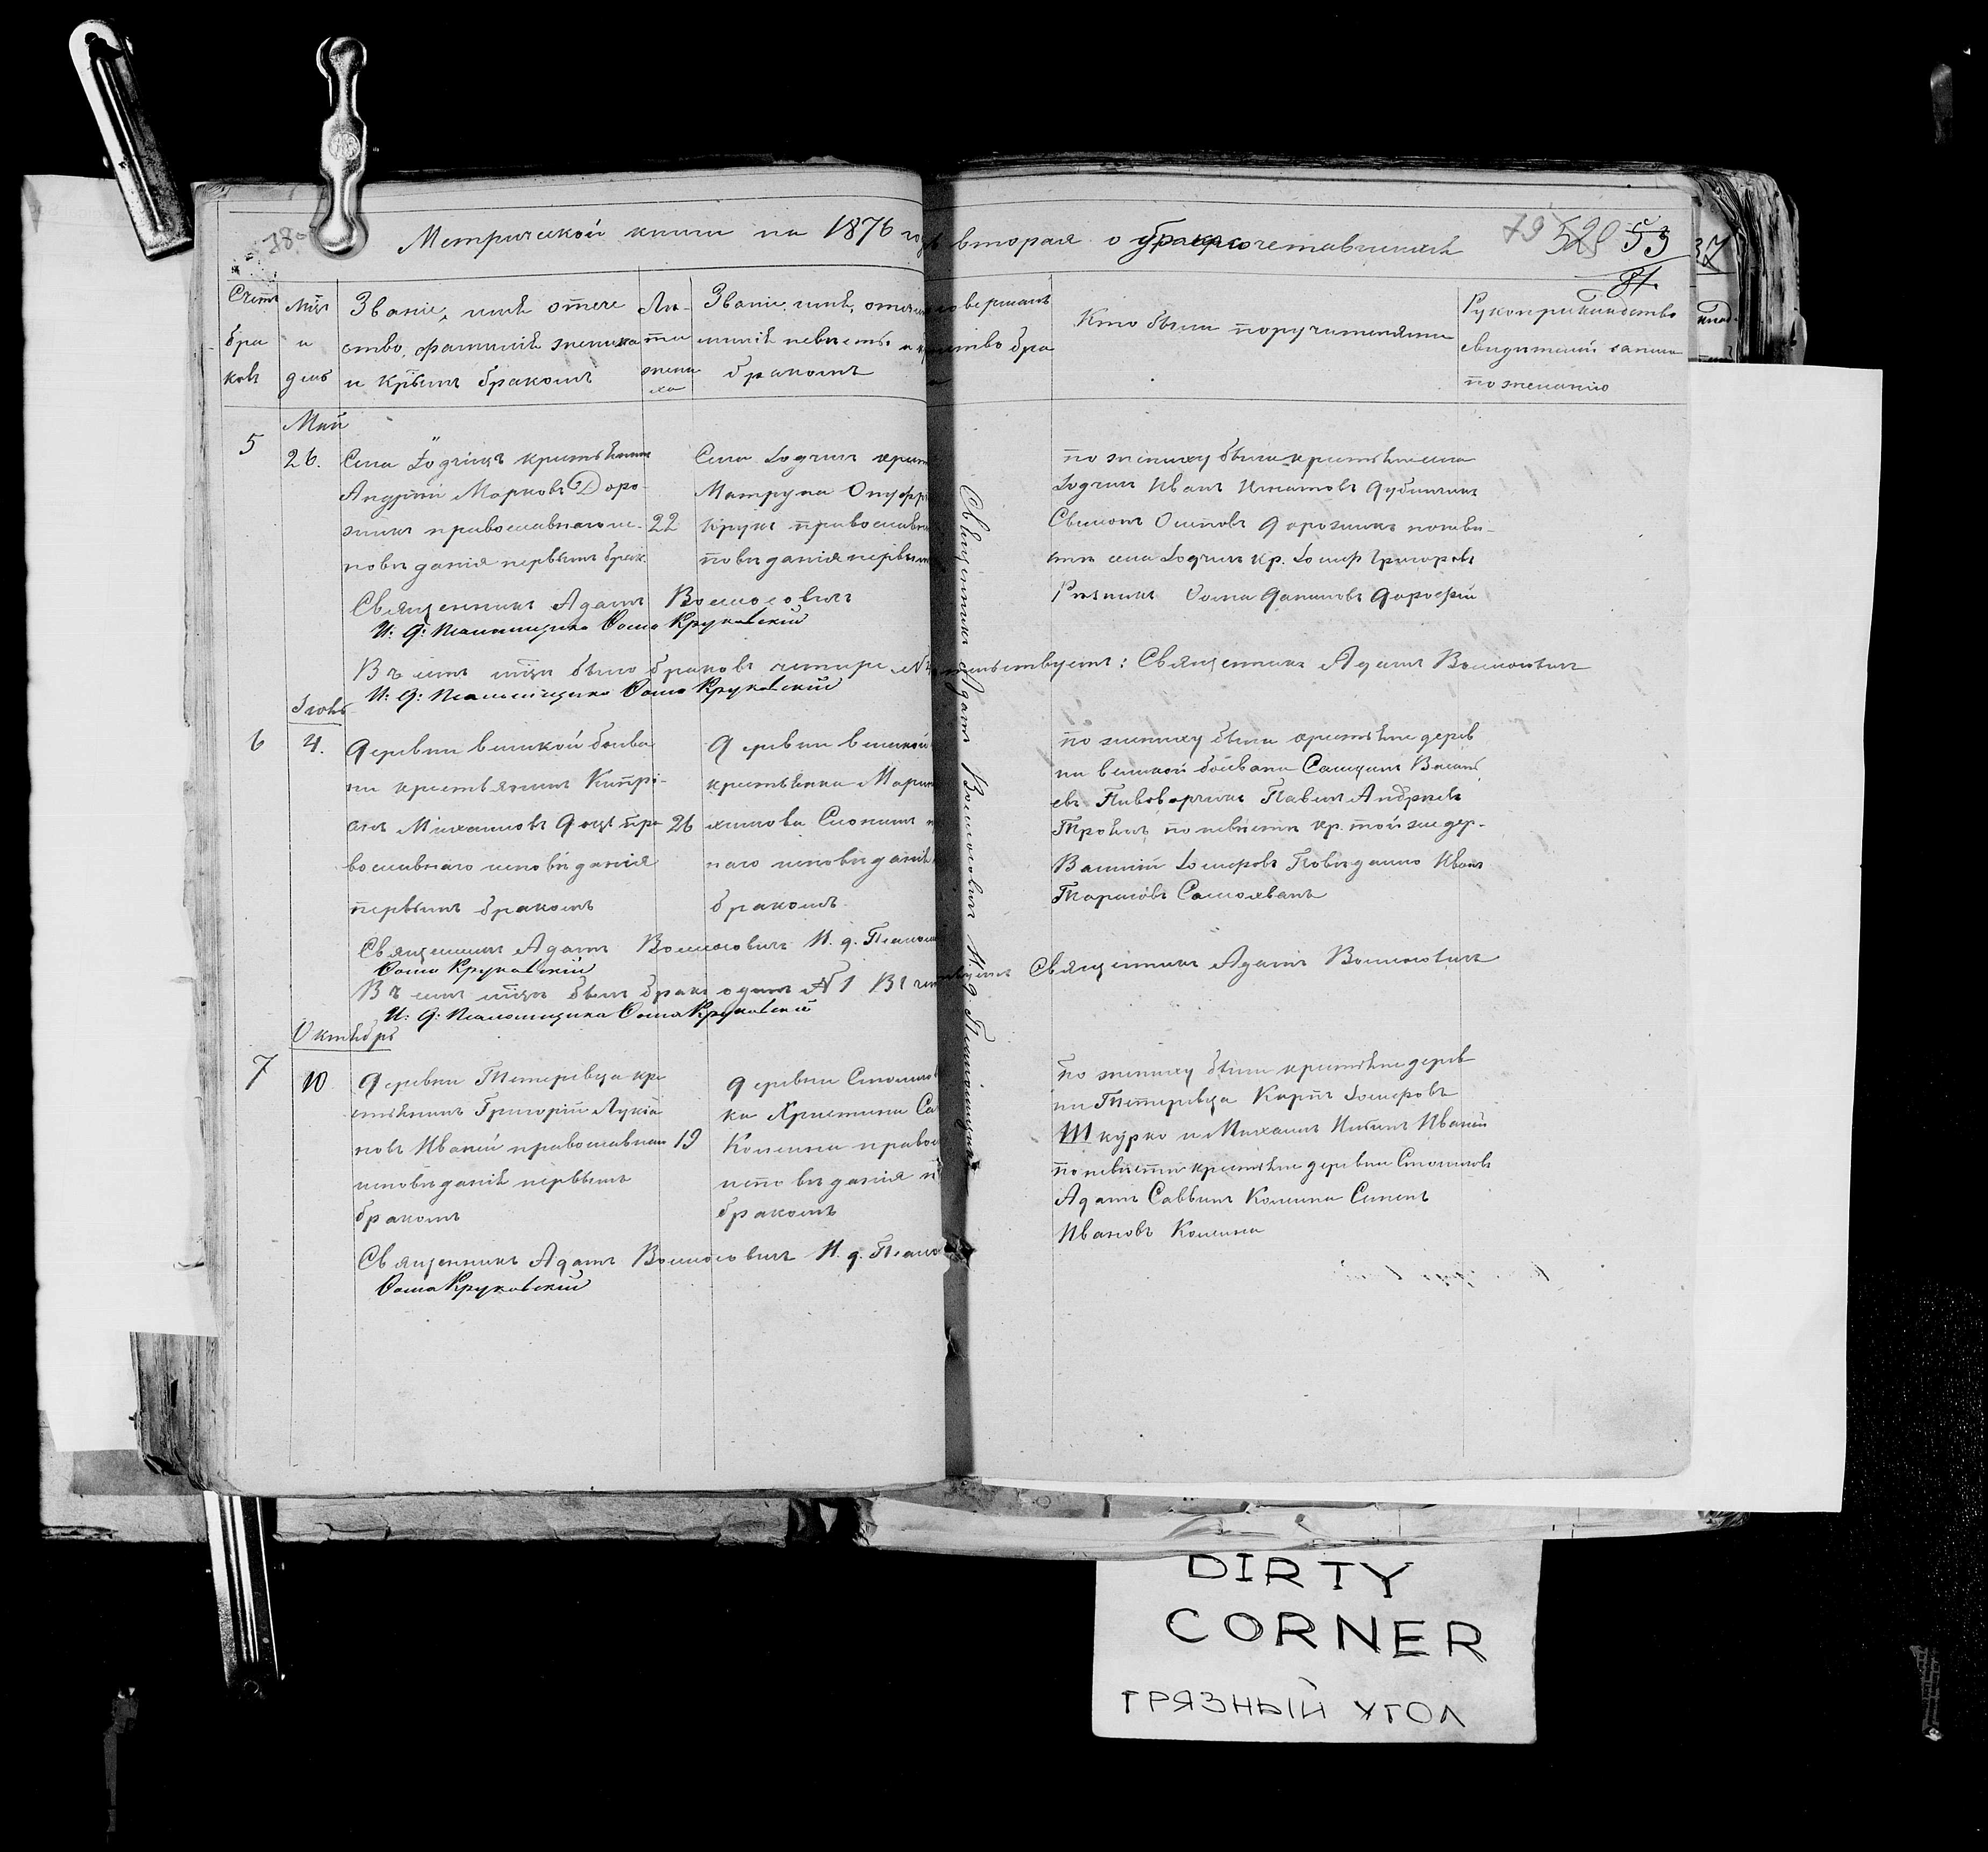 78.
Метрической книги на 1876 годъ вторая о бракосочетавшихся
79 528 53
81.
37
Счетъ браковъ
Мѣсц и день
Званіе, имя, отчество, фамилія жениха и которымъ бракомъ
Лѣта жениха
Званіе, имя, отчес
милія невѣсты и к
бракомъ
совершалъ
инство бра
Кто были поручителями
Рукоприкладство
свидѣтелей записи
по желанію
Май
5
26.
Села Іодчицъ крестьянинъ
Андрей Марковъ Доро-
жикъ православнаго ис-
повѣданія первымъ брак.
22
Села Іодчицъ крест
Матруна Онуфрі
Крукъ православн
повѣданія первым
по жениху были крестьяне села
Іодчицъ Иванъ Игнатовъ Дубинчикъ
Семіонъ Осиповъ Дорожикъ по невѣ-
стѣ села Іодчицъ кр. Іосифъ Григоровъ
Рѣзникъ Ѳома Даниловъ Дорофѣй
Священникъ Адамъ Волосовичъ
И: Д: Псаломщика Ѳома Круковскій
Въ семъ мѣсц было браковъ четыре №
тельствуетъ: Священникъ Адамъ Волосовичъ
И: Д: Псаломщика Ѳома Круковскій
Іюнь
6
4.
Деревни Великой Болва
ни крестьянинъ Кипрі-
анъ Михаиловъ Доцъ пра
вославнаго исповѣданія
первымъ бракомъ
26
Деревни Великой
крестьянка Марі
химова Слонимъ п
наго исповѣданія
бракомъ
по жениху были крестьяне дерев
ни Великой Болвани Самуилъ Василь
евъ Пивоварчикъ Павелъ Андреевъ
Троянъ, по невѣстѣ кр. той же дер-
Василій Іосифовъ Повѣдайло Иванъ
Тарасовъ Самохвалъ
Священникъ Адамъ Волосовичъ И. д. Псалом
Ѳома Круковскій
Въ семъ мѣсц былъ бракъ одинъ № 1 Въ чем
ствуетъ Священникъ Адамъ Волосовичъ
И: Д: Псаломщика Ѳома Круковскій
Октябрь
7
10
Деревни Тетеревца кре
стьянинъ Григорій Лукія
новъ Иваней православнаго
исповѣданія первымъ
бракомъ
19
Деревни Столпов
ка Христина Са
Колешка правос
исповѣданія п
бракомъ
по жениху были крестьяне дерев
ни Тетеревца Карпъ Іосифовъ
Шкурко и Михаилъ Ивановъ Иваней
по невѣстѣ крестьяне деревни Столпов
Адамъ Саввинъ Колешка Семенъ
Ивановъ Колешка
Священникъ Адамъ Волосовичъ И. д. Псало
Ѳома Круковскій
Священникъ Адамъ Волосовичъ И. д. Псаломщика
DIRTY
CORNER
ГРЯЗНЫЙ УГОЛ